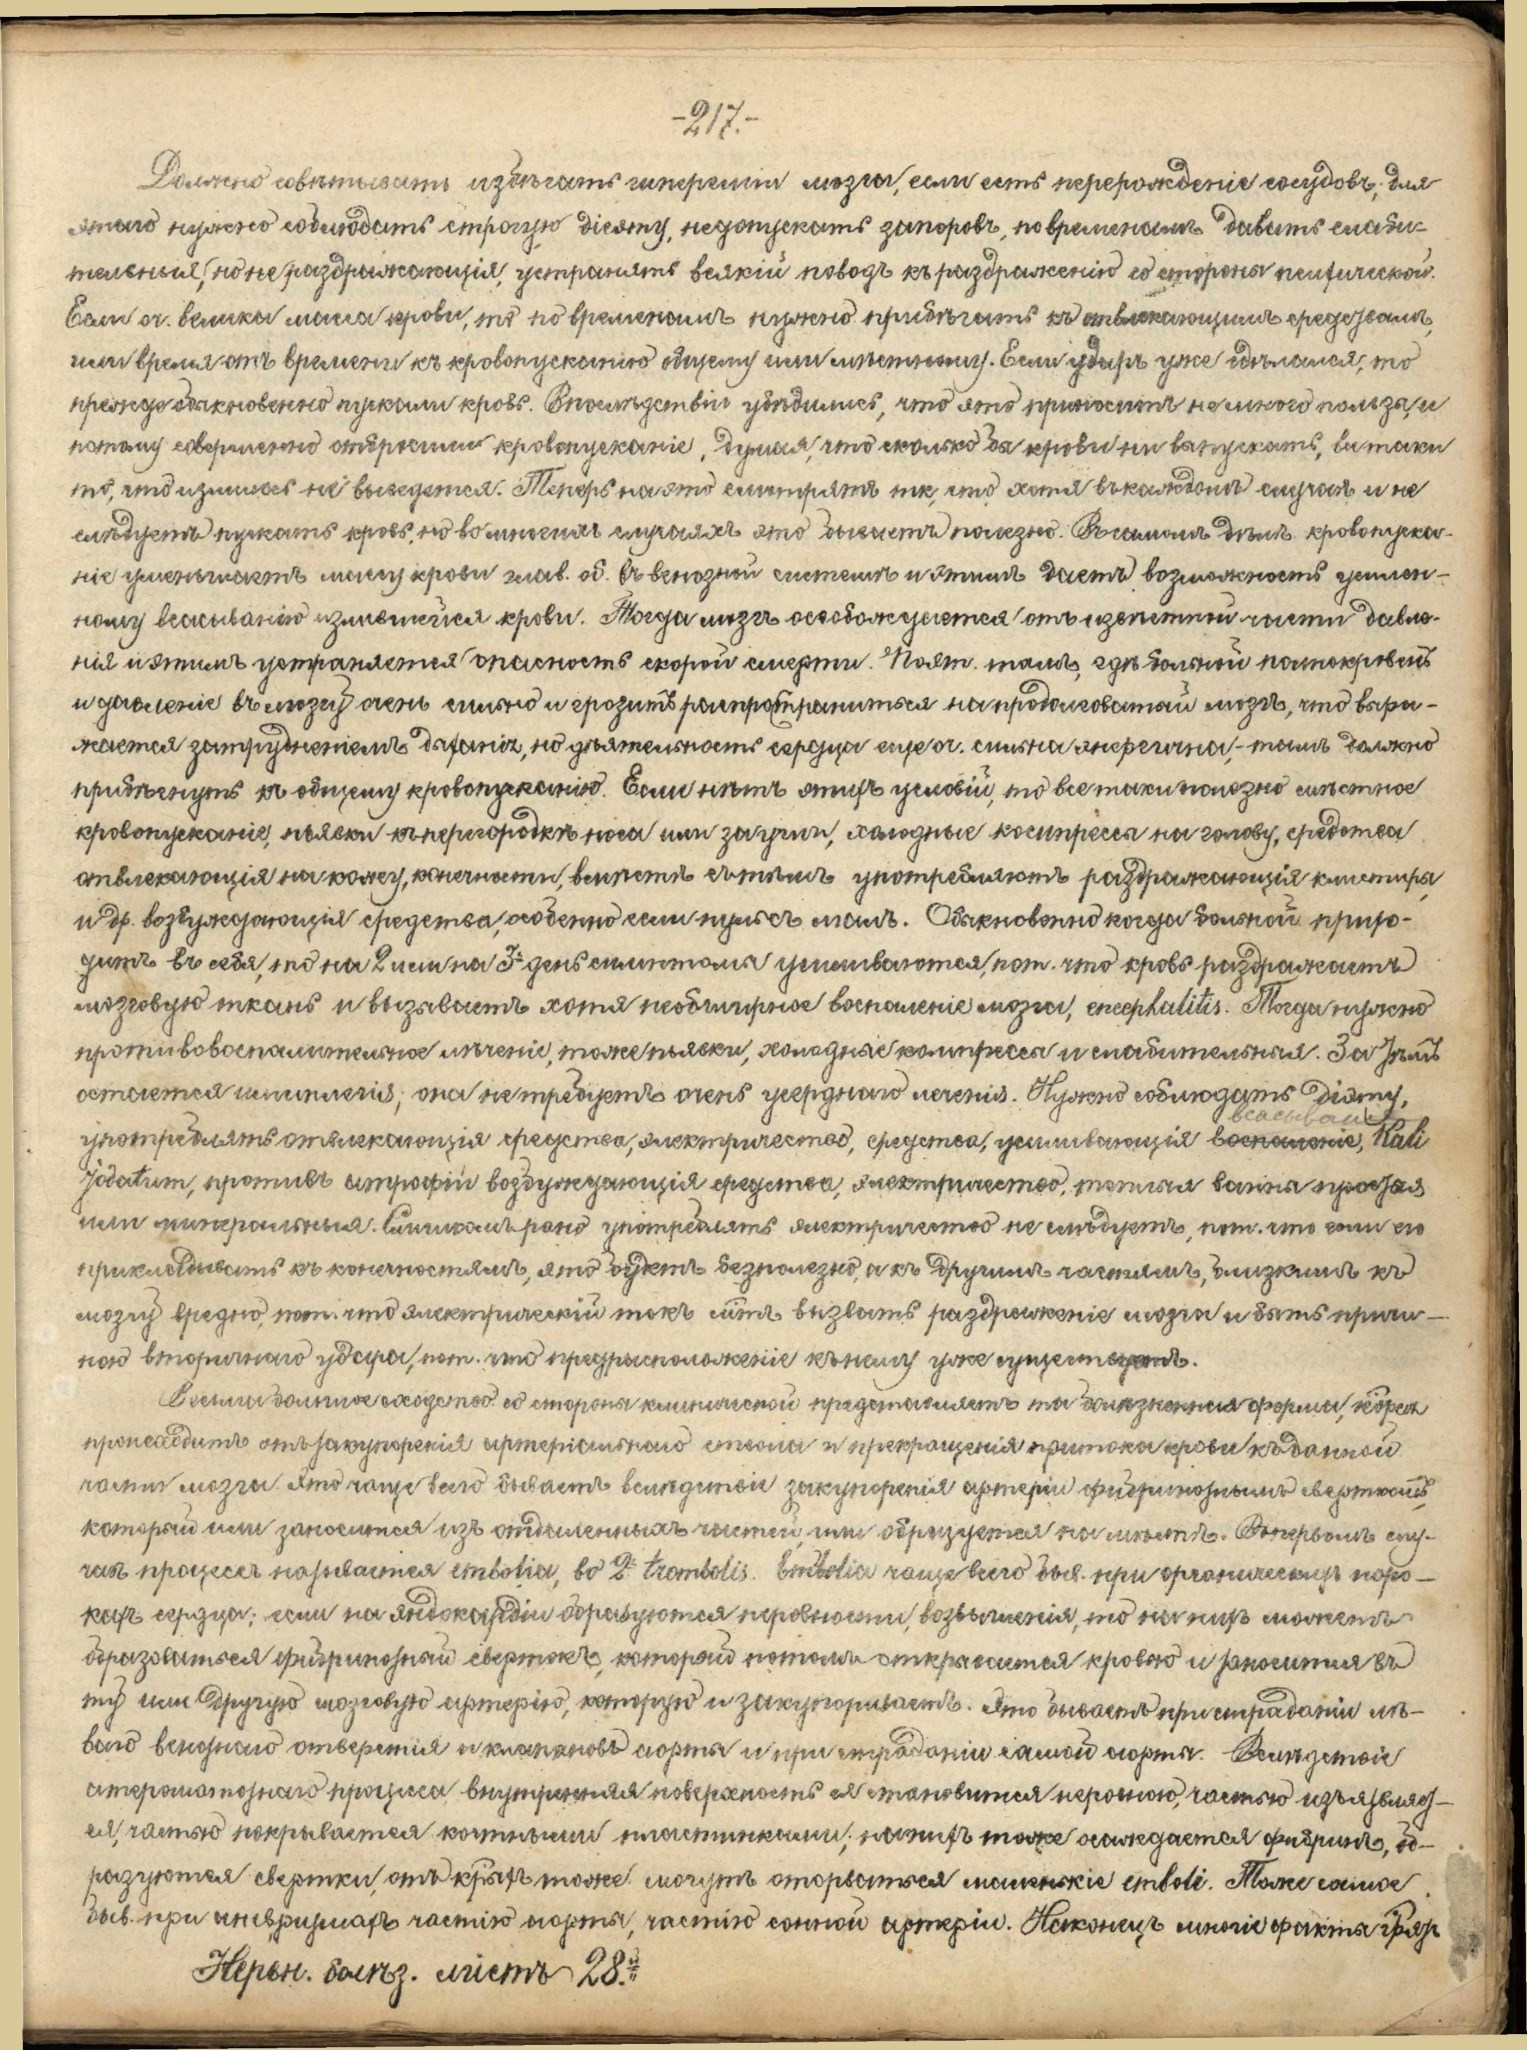 -217.-
Должно совѣтывать избѣгать гипереміи мозга, если есть перерожденіе сосудовъ; для
этого нужно соблюдать строгую діэту, недопускать запоровъ, повременамъ давать слаби-
тельныя, но не раздражающія, устранять всякій поводъ къ раздраженію со стороны психической.
Если оч. велика масса крови, то по временамъ нужно прибѣгать къ отвлекающимъ средствамъ,
или время отъ времени къ кровопусканію общему или мѣстному. Если ударъ уже сдѣлался, то
прежде обыкновенно пускали кровь. Впослѣдствіи убѣдились, что это приноситъ не много пользы, и
потому совершенно отбросили кровопусканіе, думая, что сколько бы крови ни выпускать, вытаки
то, что излилось не выведется. Теперь на это смотрятъ тк, что хотя въ каждомъ случаѣ и не
слѣдуетъ пускать кровь, но во многихъ случаяхъ это бываетъ полезно. Въ самомъ дѣлѣ кровопуска-
ніе уменьшаетъ массу крови глав. об. въ венозной системѣ и этимъ даетъ возможность усилен-
ному всасыванію излившейся крови. Тогда мозгъ освобождается отъ извѣстной части давле-
нія и этимъ устраняется опасность скорой смерти. Поэт. тамъ, гдѣ больной полнокровенъ
и давленіе въ мозгу очень сильно и грозитъ распространиться на продолговатый мозгъ, что выра-
жается затрудненіемъ дыханія, но дѣятельность сердца еще оч. сильна энергична, - тамъ должно
прибѣгнуть къ общему кровопусканію. Если нѣтъ этихъ условій, то все таки полезно мѣстное
кровопусканіе, піявки къ перегородкѣ носа или за уши, холодные компрессы на голову, средства
отвлекающія на кожу, конечности, вмѣстѣ съ тѣмъ употребляютъ раздражающія клистиры,
и др. возбуждающія средства, особенно если пульсъ малъ. Обыкновенно когда больной прихо-
дитъ въ себя, то на 2 или на 3й день симптомы усиливаются, пот. что кровь раздражаетъ
мозговую ткань и вызываетъ хотя необширное воспаленіе мозга, encephalitis. Тогда нужно
противовоспалительное лѣченіе, тоже піявки, холодные компрессы и слабительныя. За тѣмъ
остается гемиплегія; она не требуетъ очень усерднаго леченія. Нужно соблюдать діэту,
всасываніе
употреблять отвлекающія средства, электричество, средства, усиливающія воспаленіе, Kali
jodatum, противъ атрофіи возбуждающія средства, электричество, теплыя ванны простыя
или минеральныя. Слишкомъ рано употреблять электричество не слѣдуетъ, пот. что если его
прикладывать къ конечностямъ, это будетъ безполезно, а къ другимъ частямъ, близкимъ къ
мозгу вредно, пот. что электрическій токъ мжтъ вызвать раздраженіе мозга и быть причи-
ною вторичнаго удара, пот. что предрасположеніе къ нему уже существуетъ.
Весьма большое сходство со стороны клинической представляетъ та болѣзненная форма, кторая
происходитъ отъ закупоренія артеріальнаго ствола и прекращенія притока крови къ данной
части мозга. Это чаще всего бываетъ вслѣдствіе закупоренія артеріи фибринознымъ сверткомъ,
который или заносится изъ отдаленныхъ частей, или образуется на мѣстѣ. Въ первомъ слу-
чаѣ процессъ называется embolia, во 2мъ trombolis. Embolia чаще всего быв. при органическихъ поро-
кахъ сердца; если на эндокардіи образуются неровности, возвышенія, то на нихъ можетъ
образоваться фибринозный свертокъ, который потомъ открывается кровью и заносится въ
ту или другую мозговую артерію, которую и закупориваетъ. Это бываетъ при страданіи лѣ-
ваго венознаго отверстія и клапановъ аорты и при страданіи самой аорты. Вслѣдствіе
атероматознаго процесса внутренняя поверхность ея становится неровною, частью изъязвляет-
ся, частью покрывается костными пластинками; на нихъ тоже осаждается фибринъ, об-
разуются свертки, отъ кторыхъ тоже могутъ оторваться маленькіе emboli. Тоже самое
быв. при аневризмахъ частію аорты, частію сонной артеріи. Наконецъ многіе факты
Нервн. болѣз. листъ 28.й